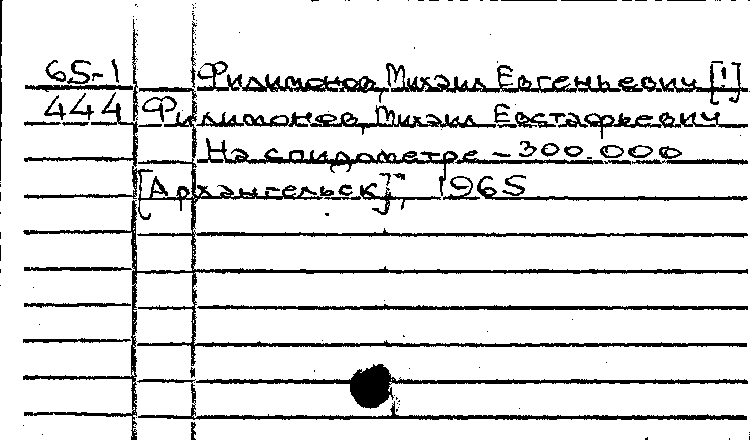 65-1 Филимонов, Михаил Евгеньевич [!]
444 Филимонов, Михаил Евстафьевич
На спидометре – 300.000
[Архангельск], 1965